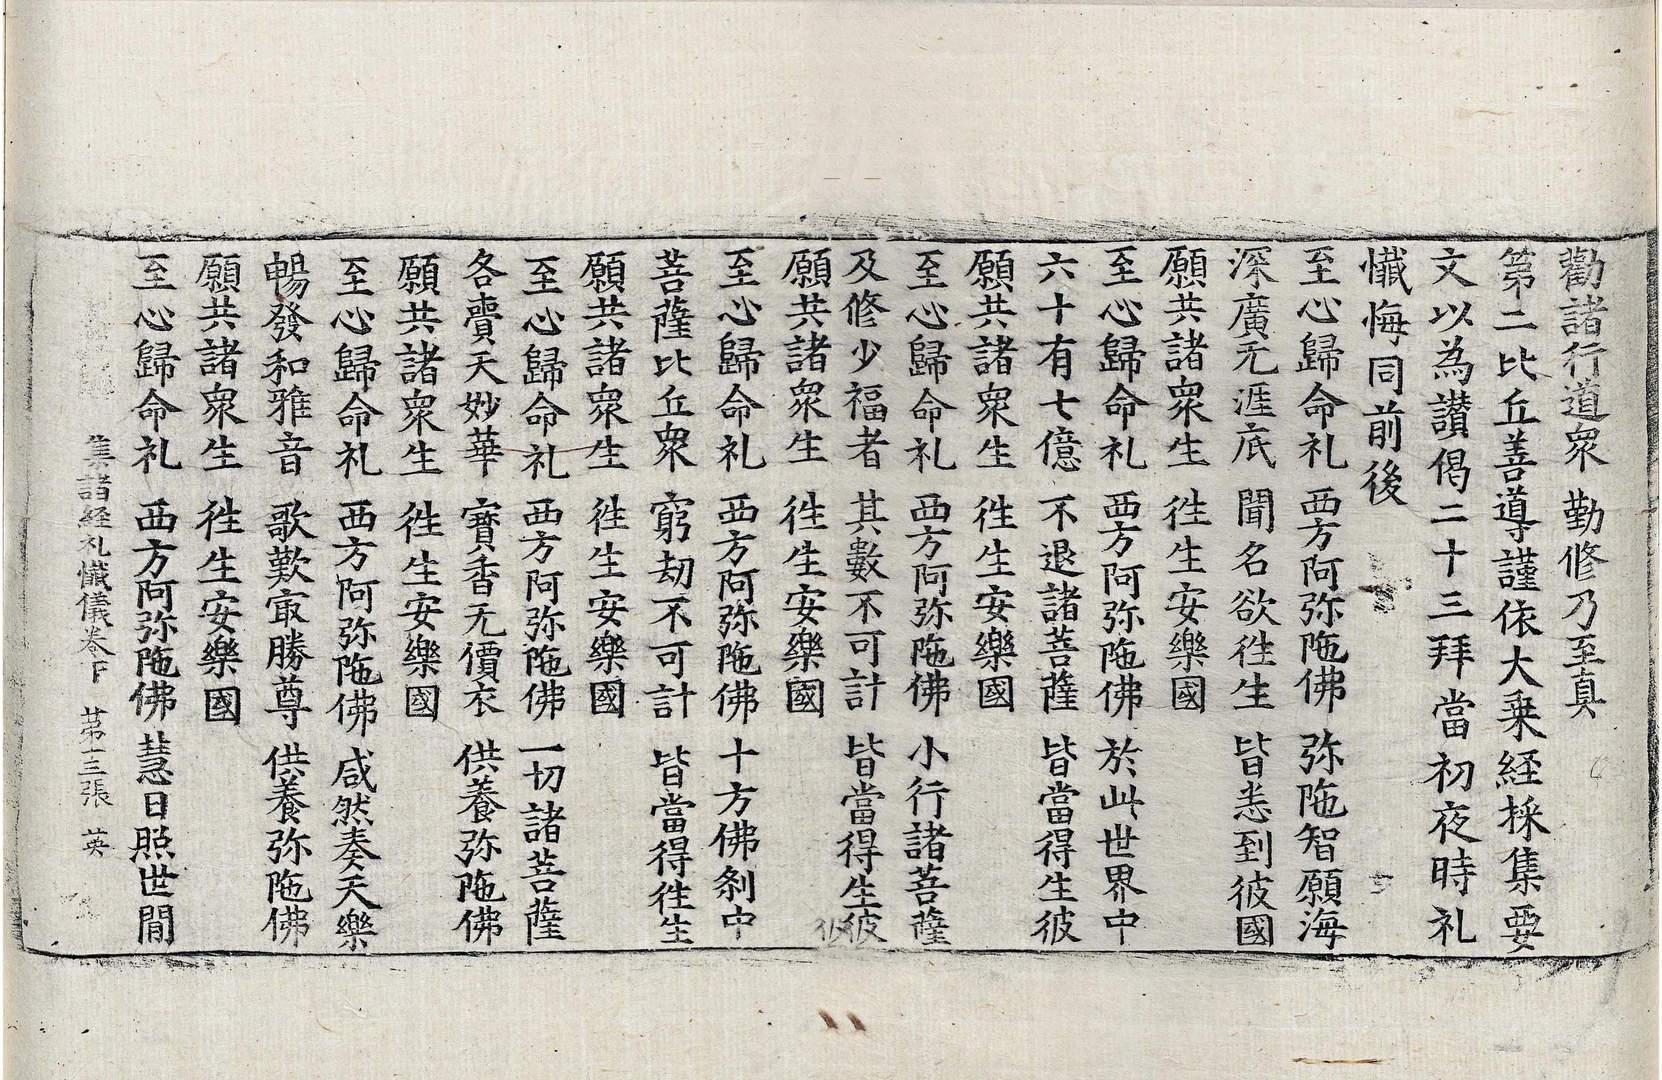 勸諸行道衆 勤修乃至真
第二比丘善導謹依大乗経採集要
文以為讃偈二十三拜當初夜時礼
懺悔同前後
至心歸命礼 西方阿弥陁佛 弥陁智願海
深廣无涯底 聞名欲徃生 皆悉到彼國
願共諸衆生 徃生安樂國
至心歸命礼 西方阿弥陁佛 於此世界中
六十有七億 不退諸菩薩 皆當得生彼
願共諸衆生 徃生安樂國
至心歸命礼 西方阿弥陁佛 小行諸菩薩
及修少福者 其數不可計 皆當得生彼
願共諸衆生 徃生安樂國
至心歸命礼 西方阿弥陁佛 十方佛刹中
菩薩比丘衆 窮劫不可計 皆當得徃生
願共諸衆生 徃生安樂國
至心歸命礼 西方阿弥陁佛 一切諸菩薩
各賷天妙華 寳香无價衣 供養弥陁佛
願共諸衆生 徃生安樂國
至心歸命礼 西方阿弥陁佛 咸然奏天樂
暢發和雅音 歌歎㝡勝尊 供養弥陁佛
願共諸衆生 徃生安樂國
至心歸命礼 西方阿弥陁佛 慧日照世間
集諸経礼懺儀卷下 苐十三張 英